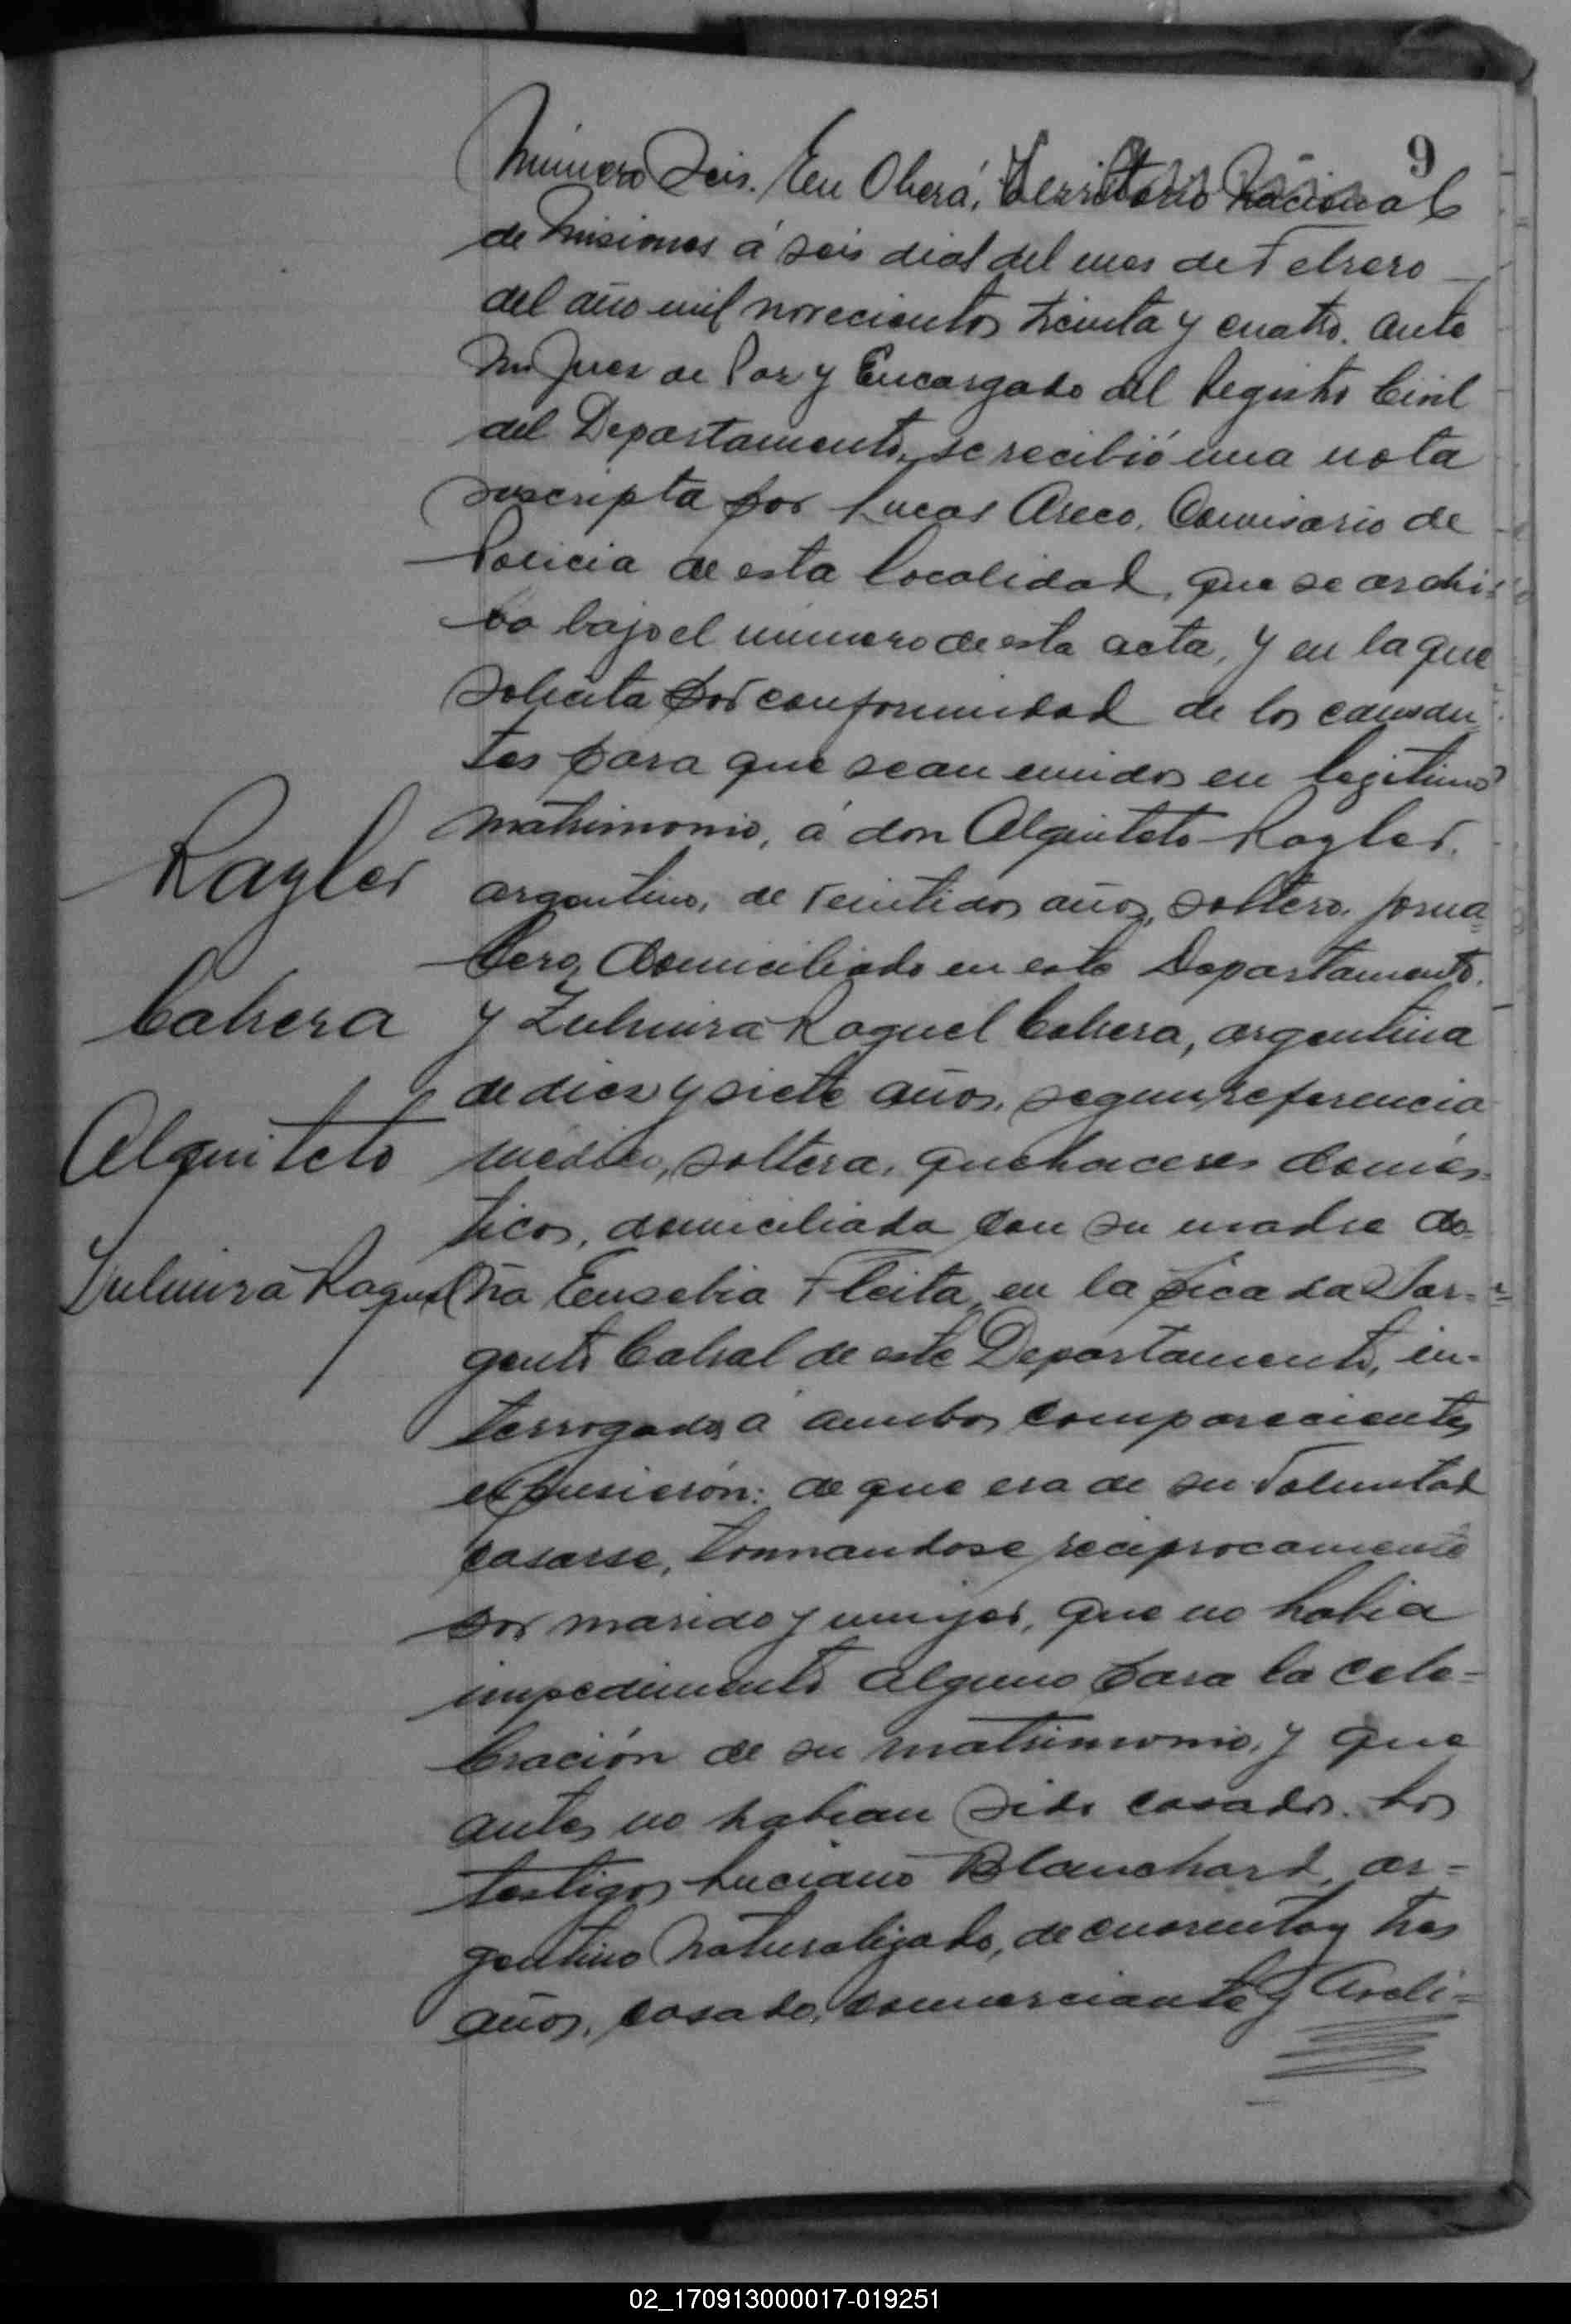 9
Número Seis. En Oberá, Territorio Nacional
de Misiones á seis dias del mes de Febrero
del año mil novecientos treinta y cuatro. ante
mi Juez de Paz y Encargado del Registro Civil
del Departamento, se recibió una nota
suscripta por Lucas Areco, Comisario de
Policia de esta localidad, que se archi-
va bajo el número de esta acta, y en la que
solicita por conformidad de los causan-
tes para que sean unidos en legitimo
matrimonio, á don Alquiteto Kayler,
argentino, de veintidos años, soltero, jorna-
lero, domiciliado en este Departamento.
y Zulmira Raquel Cabrera, argentina
de diez y siete años, segun referencia
médica, soltera, quehaceres domés-
ticos, domiciliada con su madre do-
ña Eusebia Fleita, en la picada Sar-
gento Cabral de este Departamento, in-
terrogados á ambos comparecientes
expusierón: de que era de su voluntad
casarse, tomandose reciprocamente
por marido y mujer, que no habia
impedimento alguno para la cele-
bración de su matrimonio, y que
antes no habian sido casados. Los
testigos Luciano Blanchard, ar-
gentino naturalizado, de cuarenta y tres
años, casado, comerciante y Aveli-
Kayler
Cabrera
Alquiteto
Zulmira Raquel
02_170913000017-019251